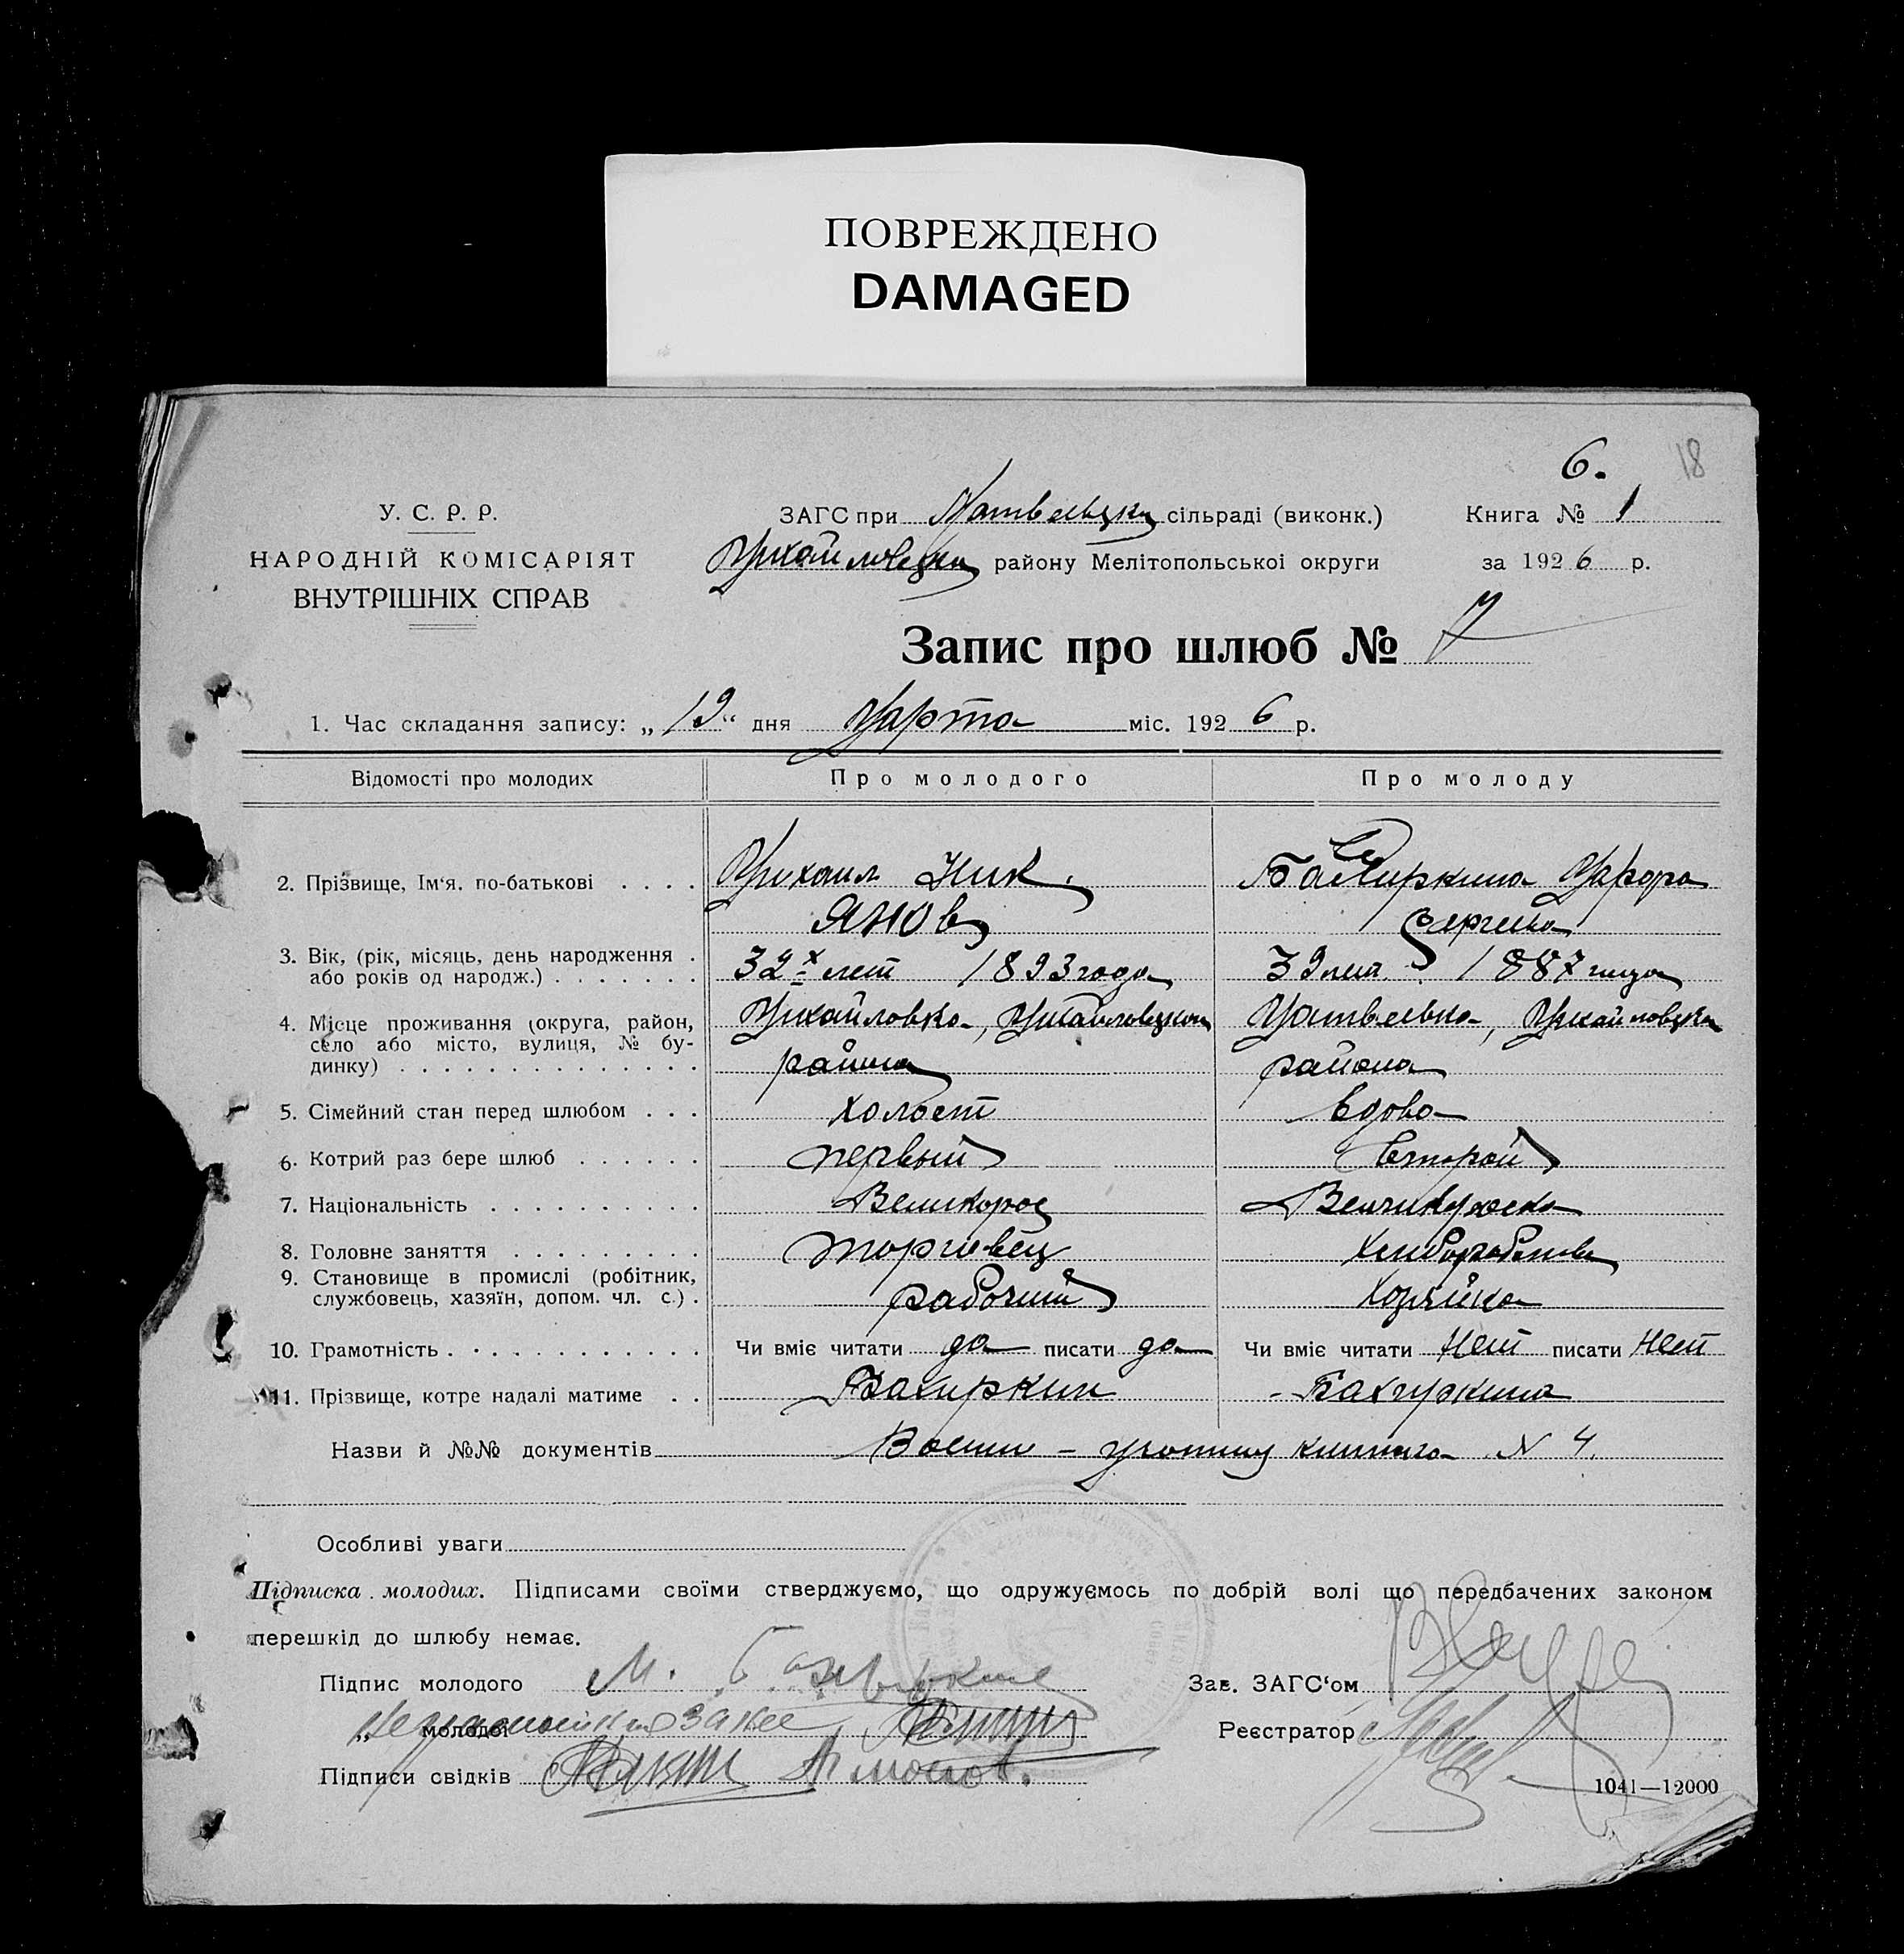 ПОВРЕЖДЕНО
DAMAGED
6. 18
У. С. Р. Р.
НАРОДНІЙ КОМІСАРІЯТ
ВНУТРІШНІХ СПРАВ
ЗАГС при сільраді (виконк.)
району Мелітопольської округи
Книга № 1
за 1926 р.
Запис про шлюб № 7
1. Час складання запису: „ 12 “ дня Марта міс. 1926 р.
Відомості про молодих Про молодого Про молоду
2. Прізвище, Ім'я. по-батькові . . . . Михаил Ник.
Янов
3. Вік, (рік, місяць, день народження . 32-х лет 1893 года 39 лет 1887 года
або років од народж.) . . . . . . .
4. Місце проживання (округа, район, Михайловка, Матвеевка,
село або місто, вулиця, № бу- района района
динку) . . . . . . . . . . . . . .
5. Сімейний стан перед шлюбом . . . холост вдова
6. Котрий раз бере шлюб . . . . . . первый второй
7. Національність . . . . . . . . . . Великорос
8. Головне заняття . . . . . . . . . торговец
9. Становище в промислі (робітник, рабочий хозяйка
службовець, хазяїн, допом. чл. с.) .
10. Грамотність . . . . . . . . . . . . Чи вміє читати да писати да Чи вміє читати нет писати нет
11. Прізвище, котре надалі матиме . . Бахиркин Бахиркина
Назви й №№ документів книжка N 4.
Особливі уваги
Підписка молодих. Підписами своїми стверджуємо, що одружуємось по добрій волі що передбачених законом
перешкід до шлюбу немає.
Підпис молодого М. Зав. ЗАГС‘ом
„ молодої Реєстратор
Підписи свідків
1041—12000